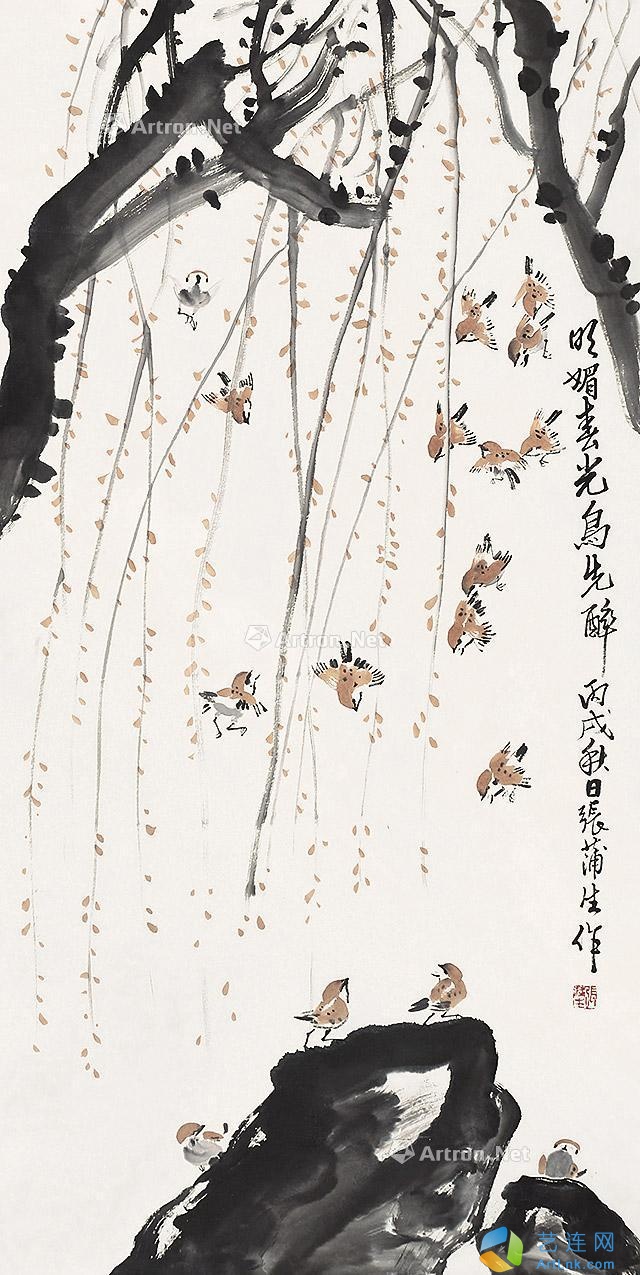 明媚春光鳥先醉 丙戌秋日張蒲生作
Artron.Net
Artron.Net
Artron.Net
艺连网
Artlnk.com